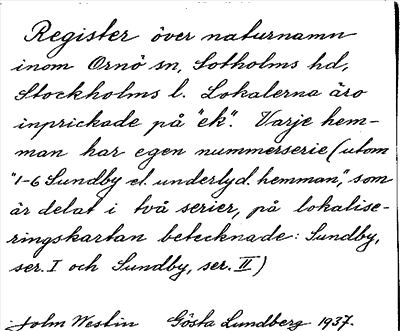 Register över naturnamn
inom Ornö sn, Sotholms hd,
Stockholms l. Lokalerna äro
inprickade på "ek". Varje hem-
man har egen nummerserie (utom
"1-6 Sundby el. underlyd. hemman", som
är delat i två serier, på lokalise-
ringskartan betecknade: Sundby,
ser. I och Sundby, ser. II)
John Westin Gösta Lundberg 1937.